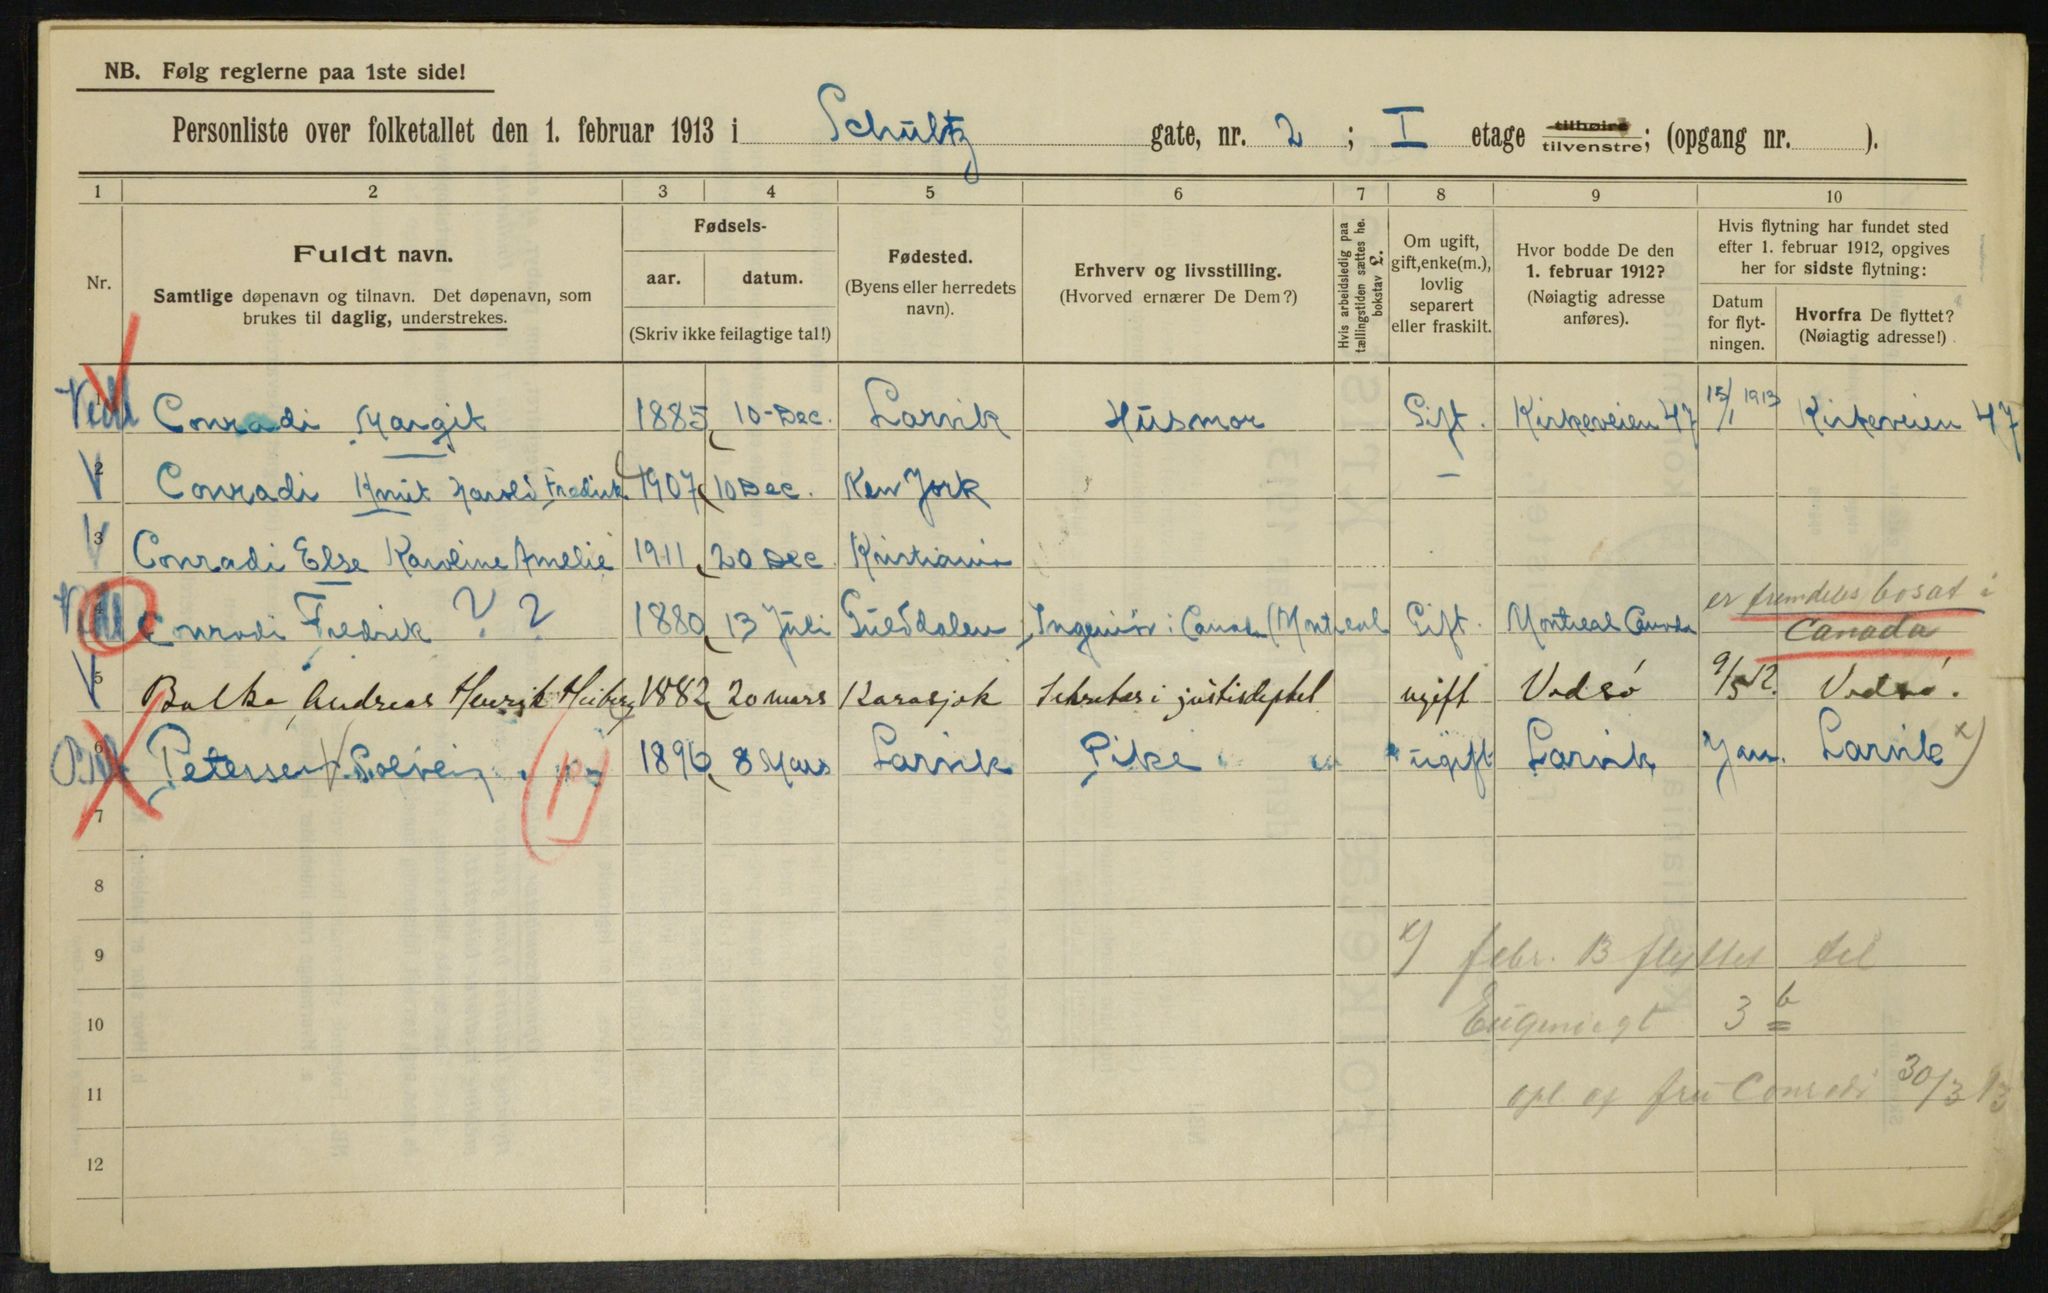 NB. Følg reglerne paa 1ste side!
Personliste over folketallet den 1. februar 1913 i Schultz gate, nr. 2 ; I etage tilhøire tilvenstre; (opgang nr. ).
1 2 3 4 5 6 7 8 9 10
Nr.
Fuldt navn.
Samtlige døpenavn og tilnavn. Det døpenavn, som
brukes til daglig, understrekes.
Fødsels-
aar. datum.
(Skriv ikke feilagtige tal!)
Fødested.
(Byens eller herredets
navn).
Erhverv og livsstilling.
(Hvorved ernærer De Dem?)
Hvis arbeidsledig paa
tællingstiden sættes he.
bokstav L.
Om ugift,
gift, enke(m.),
lovlig
separert
eller fraskilt.
Hvor bodde De den
1. februar 1912?
(Nøiagtig adresse
anføres).
Hvis flytning har fundet sted
efter 1. februar 1912, opgives
her for sidste flytning:
Datum
for flyt-
ningen.
Hvorfra De flyttet?
(Nøiagtig adresse!)
1 Conradi Margit 1885 10-Dec. Larvik Husmor Gift. Kirkeveien 47 15/1 1913 Kirkeveien 47
2 Conradi Knut Harold Fredrik 1907 10 Dec. New York -
3 Conradi Else Karoline Amelie 1911 20 Dec Kristiania
4 Conradi Fredrik ? ? 1880 13 Juli Guldalen Ingeniør i Canada (Montreal Gift. Montreal Canada er fremdeles bosat i
Canada
5 Balke, Andreas Henrik Heiberg 1882 20 mars Karasjok Sekretær i justisdeptet ugift Vadsø 9/5 12. Vadsø.
6 Petersen Solveig 1896 8 Mars Larvik Pike ugift Larvik Jan. Larvik x)
7
8
9
10
11
12
x) febr. 13 flyttet til
Eugeniegt 3 b
opl af fru Conradi 30/3 13